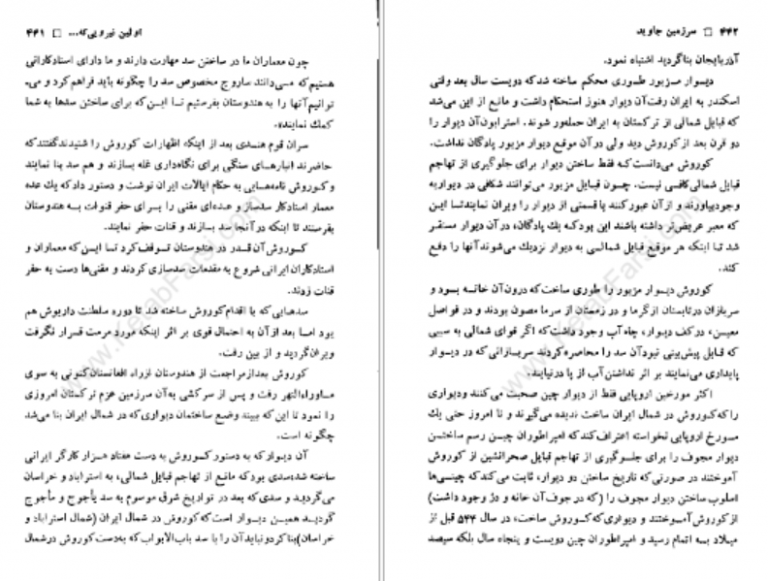 اولین نیرویی‌که... □ ۴۴۱
چون معماران ما در ساختن سد مهارت دارند و ما دارای استادکارانی
هستیم‌که می‌دانند ساروج مخصوص سد را چگونه باید فراهم‌کرد و می‌
توانیم‌آنها را به هندوستان بفرستیم تا این‌که برای ساختن سدها به شما
کمک نمایند».
سران قوم هندی بعد از اینکه اظهارات کوروش را شنیدندگفتندکه
حاضرند انبارهای سنگی برای نگاهداری غله بسازند و هم سد بنا نمایند
وکوروش نامه‌هایی به حکام ایالات ایران نوشت و دستور دادکه یک عده
معمار استادکار سدساز و عده‌ای مقنی را برای حفر قنوات به هندوستان
بفرستند تا اینکه درآنجا سد بسازند و قنات حفر نمایند.
کوروش‌آن قدر در هندوستان توقف‌کرد تا این‌که معماران و
استادکاران ایرانی شروع به مقدمات سدسازی کردند و مقنی‌ها دست به حفر
قنات زدند.
سدهایی که با اقدام‌کوروش ساخته شد تا دوره سلطنت داریوش هم
بود اما بعد ازآن به احتمال قوی بر اثر اینکه مورد مرمت قرار نگرفت
ویران‌گردید و از بین رفت.
کوروش بعدازمراجعت از هندوستان ازراه افغانستان‌کنونی به سوی
ماوراءالنهر رفت و پس از سرکشی به‌آن سرزمین عزم ترکستان امروزی
را نمود تا این که ببیند وضع ساختمان دیواری‌که در شمال ایران بنا می‌شد
چگونه است.
آن دیوارکه به دستور کوروش به دست هفتاد هزار کارگر ایرانی
ساخته شده‌سدی بودکه مانع از تهاجم قبایل شمالی، به استرآباد و خراسان
می‌گردید و سدی‌که بعد در تواریخ شرق موسوم به سد یأجوج و مأجوج
گردید همین دیوار است‌که کوروش در شمال ایران (شمال استرآباد و
خراسان)بناکردونبایدآن را با سد باب‌الابواب‌که به‌دست‌کوروش درشمال
۴۴۲ □ سرزمین جاوید
آذربایجان بناگردید اشتباه نمود.
دیوار مزبور طوری محکم ساخته شدکه دویست سال بعد وقتی
اسکندر به ایران رفت‌آن دیوار هنوز استحکام داشت و مانع از این می‌شد
که قبایل شمالی از ترکستان به ایران حمله‌ور شوند. استرابون‌آن دیوار را
دو قرن بعد ازکوروش دید ولی درآن موقع دیوار مزبور پادگان نداشت.
کوروش می‌دانست‌که فقط ساختن دیوار برای جلوگیری از تهاجم
قبایل شمالی‌کافی نیست. چون قبایل مزبور می‌توانند شکافی در دیواربه
وجودبیاورند و ازآن عبورکنند یا قسمتی از دیوار را ویران نمایندتا این
که معبر عریض‌تر داشته باشند این بودکه یک پادگان، درآن دیوار مستقر
شد تا اینکه هر موقع قبایل شمالی به دیوار نزدیک می‌شوندآنها را دفع
کند.
کوروش دیوار مزبور را طوری ساخت‌که درون‌آن خانه بود و
سربازان درتابستان ازگرما و در زمستان از سرما مصون بودند و در فواصل
معین، درکف دیوار، چاه‌آب وجود داشت‌که اگر قوای شمالی به سببی
که قابل پیش‌بینی نبودآن سد را محاصره‌کردند سربازانی که در دیوار
پایداری می‌نمایند بر اثر نداشتن‌آب از پا درنیایند.
اکثر مورخین اروپایی فقط از دیوار چین صحبت می‌کنند ودیواری
راکه‌کوروش در شمال ایران ساخت ندیده می‌گیرند و تا امروز حتی یک
مورخ اروپایی نخواسته اعتراف‌کندکه امپراطوران چین رسم ساختن
دیوار مجوف را برای جلوگیری از تهاجم قبایل صحرانشین از کوروش
آموختند در صورتی‌که تاریخ ساختن دو دیوار، ثابت می‌کندکه چینی‌ها
اسلوب ساختن دیوار مجوف را (که در جوف‌آن خانه و دژ وجود داشت)
ازکوروش‌آموختند و دیواری‌که‌کوروش ساخت، در سال ۵۴۴ قبل از
میلاد به اتمام رسید و امپراطوران چین دویست و پنجاه سال بلکه سیصد
www.KetabFarsi.com
www.KetabFarsi.com